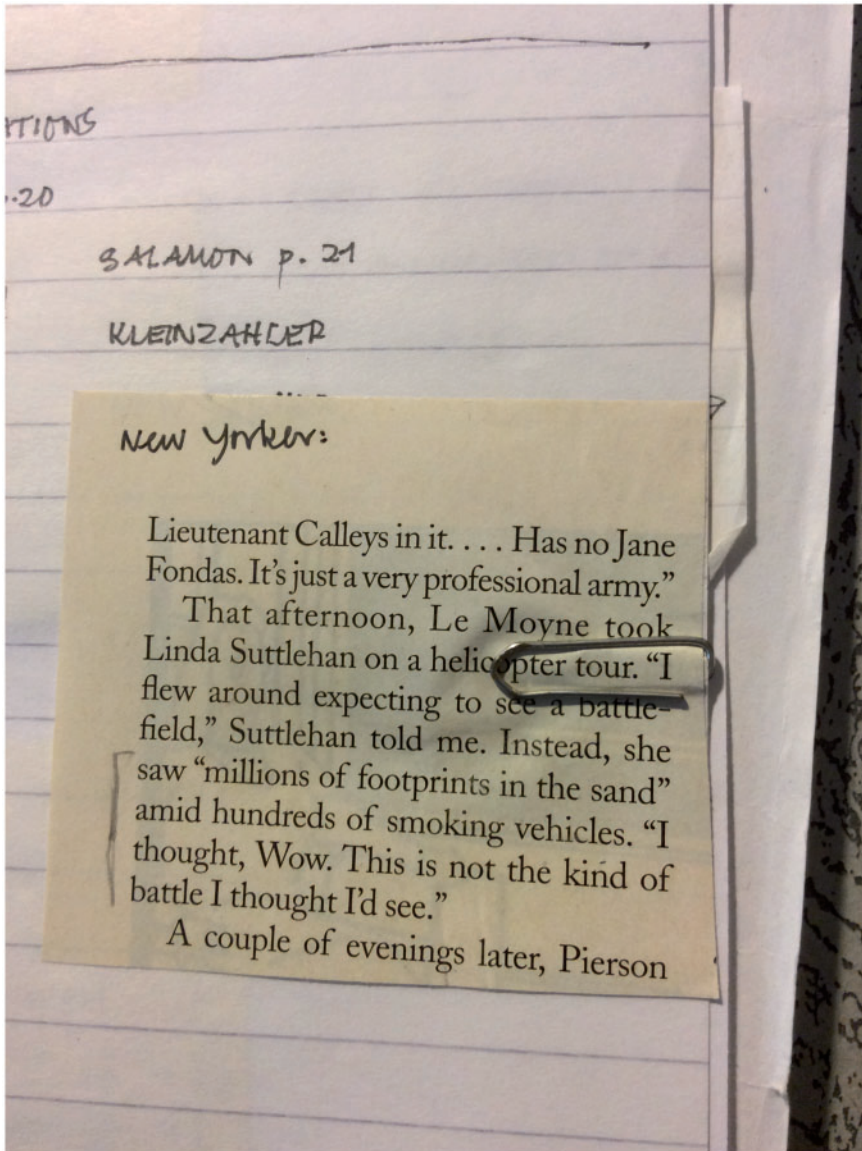 ATIONS
.20
SALAMON p. 21
KLEINZAHLER
New Yorker:
Lieutenant Calleys in it. . . . Has no Jane
Fondas. It's just a very professional army.”
That afternoon, Le Moyne took
Linda Suttlehan on a helicopter tour. “I
flew around expecting to see a battle-
field,” Suttlehan told me. Instead, she
saw “millions of footprints in the sand”
amid hundreds of smoking vehicles. “I
thought, Wow. This is not the kind of
battle I thought I'd see.”
A couple of evenings later, Pierson